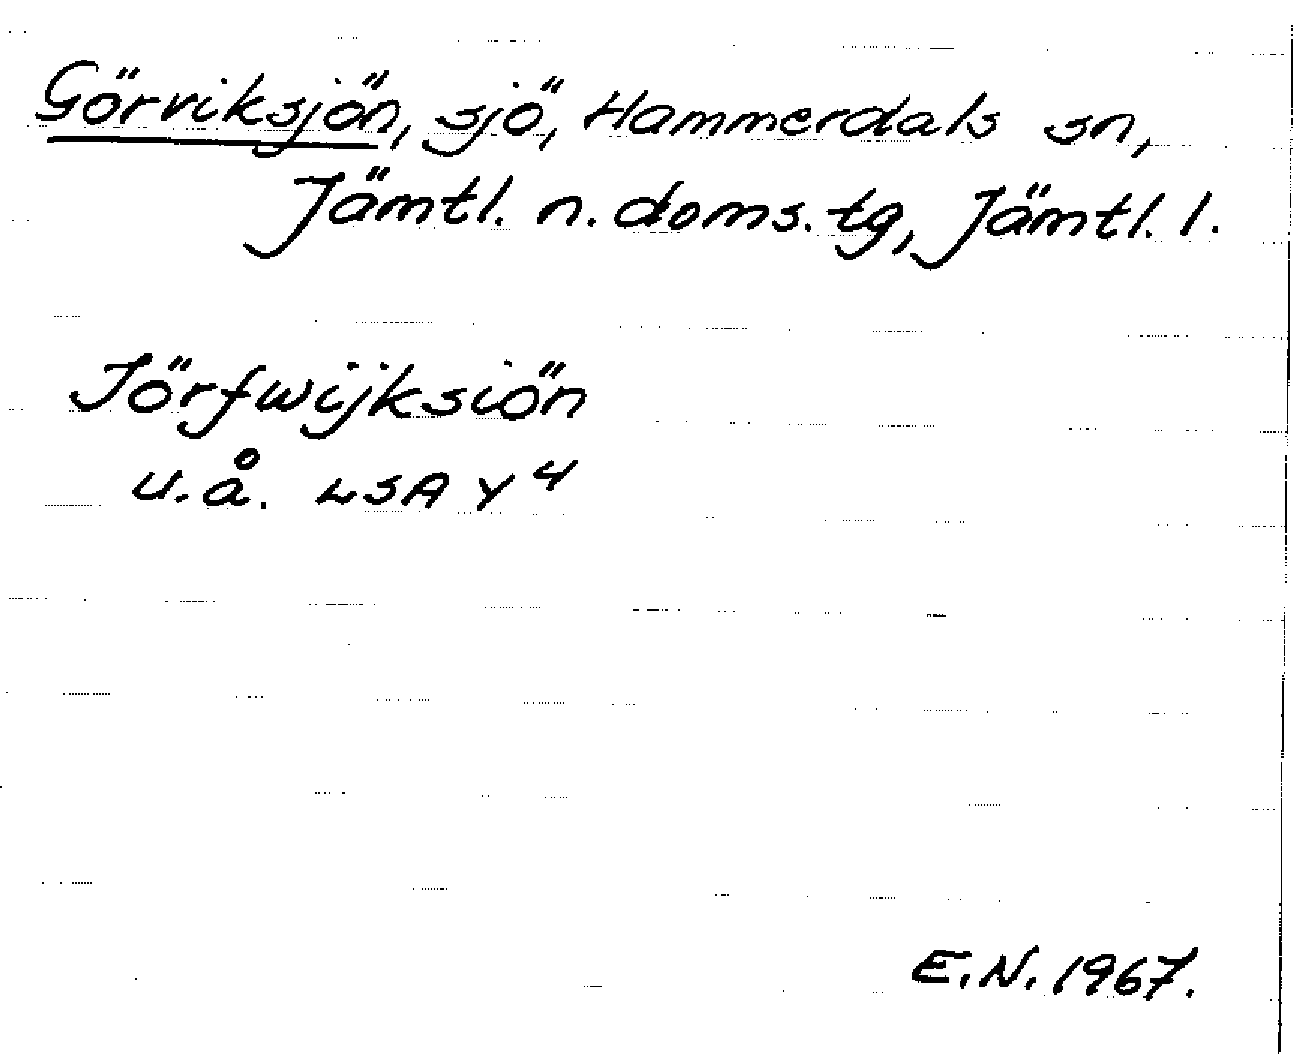 Görviksjön, sjö, Hammerdals sn,
Jämtl. n. doms. tg, Jämtl. l.
Jörfwijksiön
u.å. LSA Y 4
E.N. 1967.